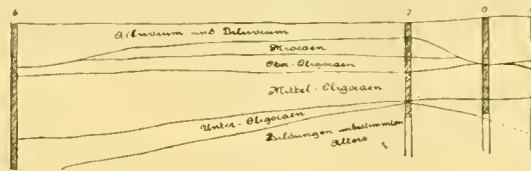 6
7
8
Alluvium und Diluvium
Miocaen
Ober-Oligocaen
Mittel-Oligocaen
Unter-Oligocaen
Bildungen unbestimmten
Alters